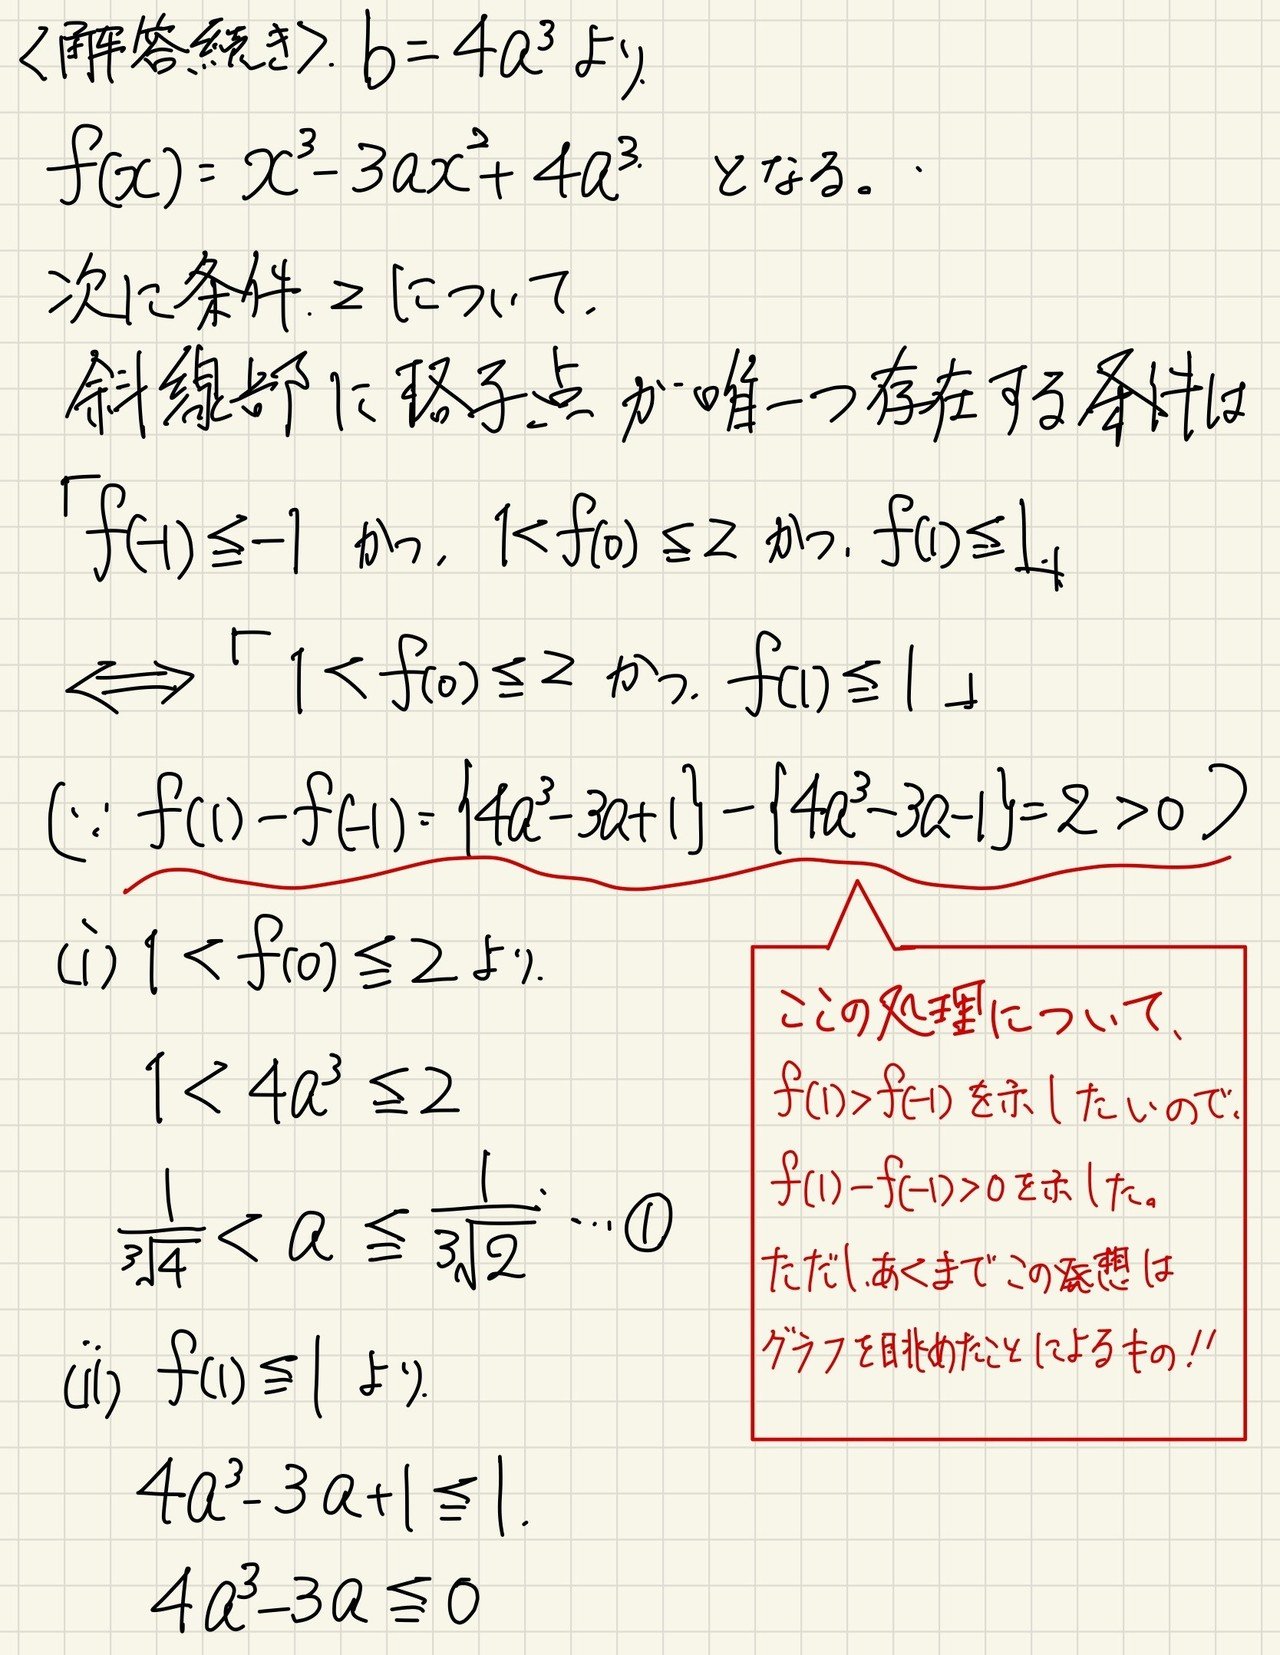 <解答続き>. b=4a³より
f(x)=x³-3ax²+4a³ となる。
次に条件.2について.
斜線部に格子点が唯一つ存在する条件は
「f(-1)≦-1 かつ. 1<f(0)≦2 かつ. f(1)≦1」
⇔「1<f(0)≦2 かつ. f(1)≦1」
(∵ f(1)-f(-1)={4a³-3a+1}-{4a³-3a-1}=2>0)
(i) 1<f(0)≦2より.
1<4a³≦2
1/³√4 < a ≦ 1/³√2 …①
(ii) f(1)≦1 より.
4a³-3a+1≦1.
4a³-3a≦0
ここの処理について、
f(1)>f(-1)を示したいので、
f(1)-f(-1)>0を示した。
ただし、あくまでこの発想は
グラフを眺めたことによるもの!!